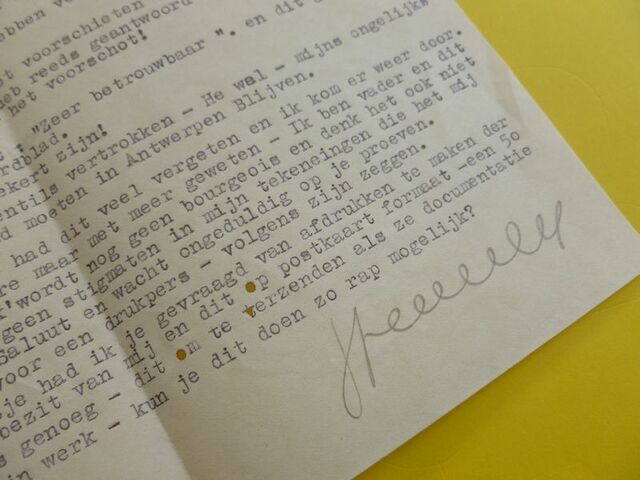 ebben
st voorschieten
eb reeds geantwoord
het voorschot!
" Zeer betrouwbaar ". en dit
rdblad.
ekert zijn!
entils vertrokken - He wel - mijns ongelijks
d moeten in Antwerpen Blijven.
had dit veel vergeten en ik kom er weer door.
re maar met meer geweten - Ik ben vader en dit
k'wordt nog geen bourgeois en denk het ook niet
geen stigmaten in mijn tekeneingen die het mij
Saluut en wacht ongeduldig op je proeven.
voor een drukpers - volgens zijn zeggen.
je had ik je gevraagd van afdrukken te maken der
bezit van mij en dit op postkaart formaat -een 50
s genoeg - dit om te verzenden als ze documentatie
in werk - kun je dit doen zo rap mogelijk?